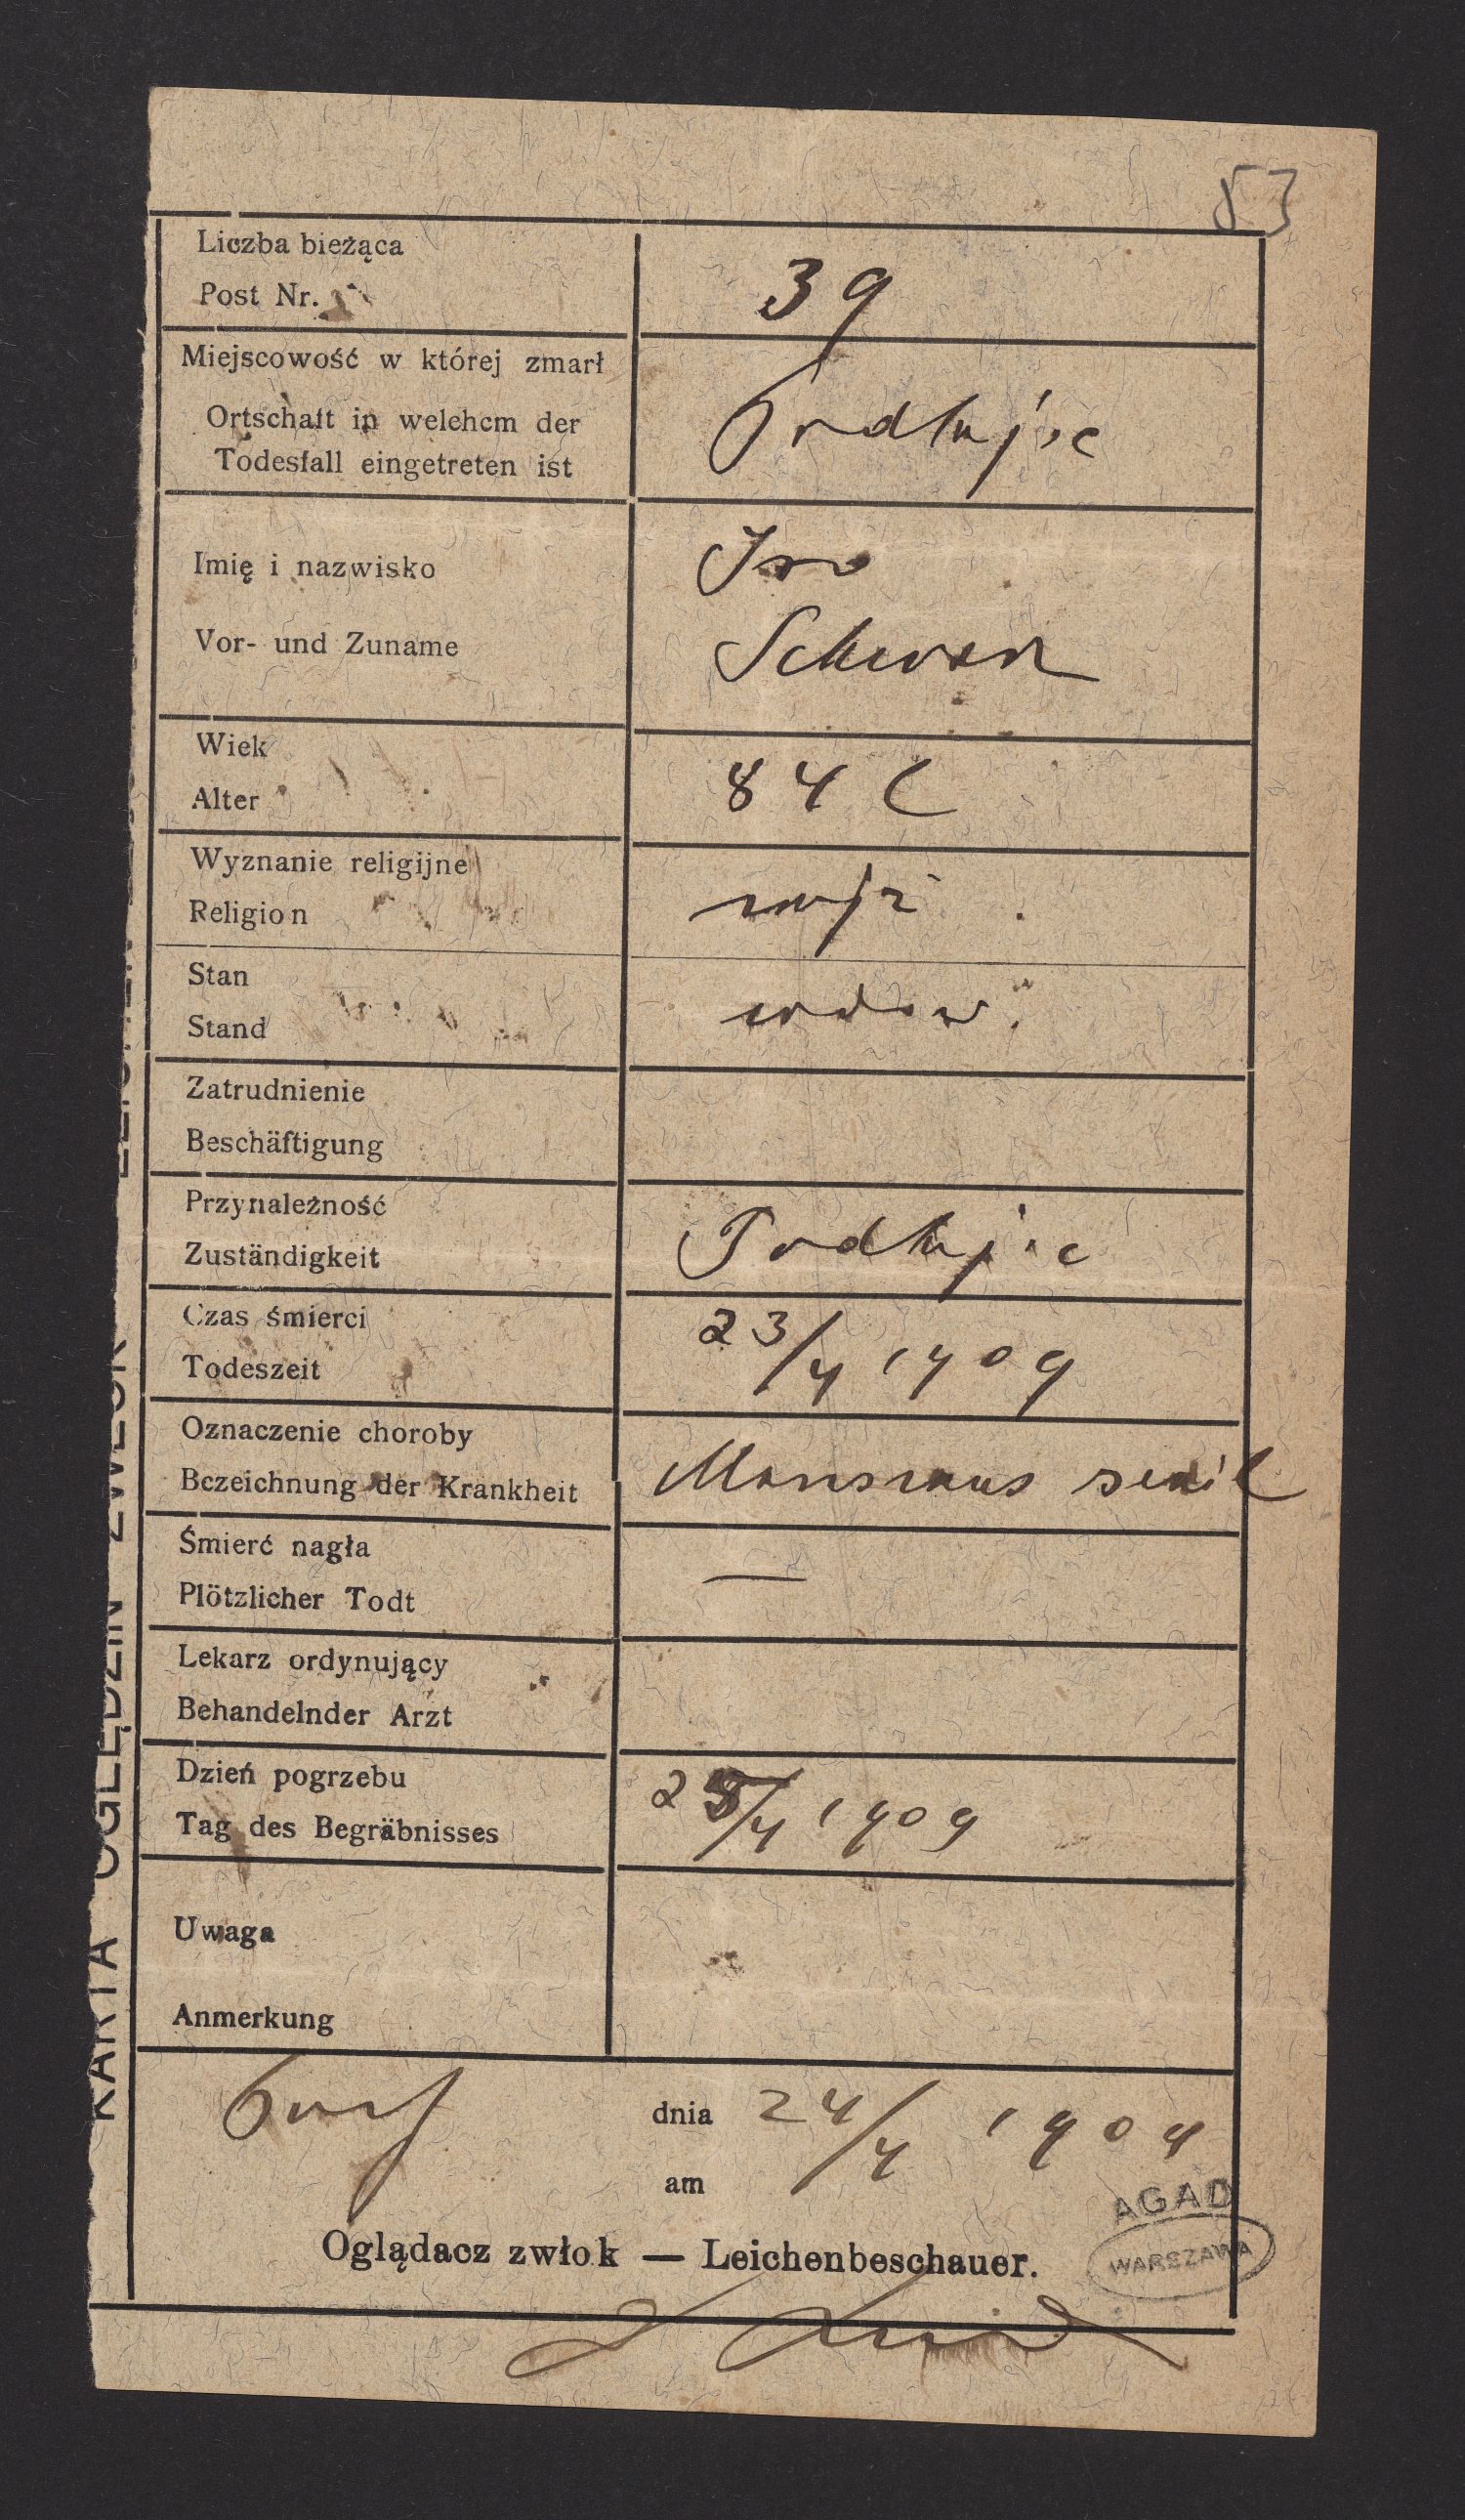 83
Liczba bieżąca
Post Nr.
39
Miejscowość w której zmarł
Ortschaft in welchem der
Todesfall eingetreten ist
Podhajce
Imię i nazwisko
Vor- und Zuname
Schwarz
Wiek
Alter
84
Wyznanie religijne
Religion
mojż
Stan
Stand
wdow.
Zatrudnienie
Beschäftigung
Przynależność
Zuständigkeit
Podhajce
Czas śmierci
Todeszeit
23/4 1909
Oznaczenie choroby
Bezeichnung der Krankheit
Marasmus senil
Śmierć nagła
Plötzlicher Todt
—
Lekarz ordynujący
Behandelnder Arzt
Dzień pogrzebu
Tag des Begräbnisses
1909
Uwaga
Anmerkung
dnia 24/4 1909
am
Oglądacz zwłok — Leichenbeschauer.
AGAD
WARSZAWA
KARTA OGLĘDZIN ZWŁOK